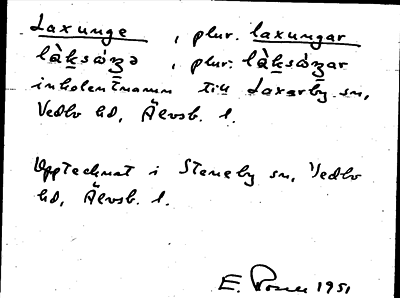 Laxunge, plur. laxungar
làksòŋə, plur. làksòŋar
inkolentnamn till Laxarby sn,
Vedbo hd, Älvsb. l.
Upptecknat i Steneby sn, Vedbo
hd, Älvsb. l.
E. 1951